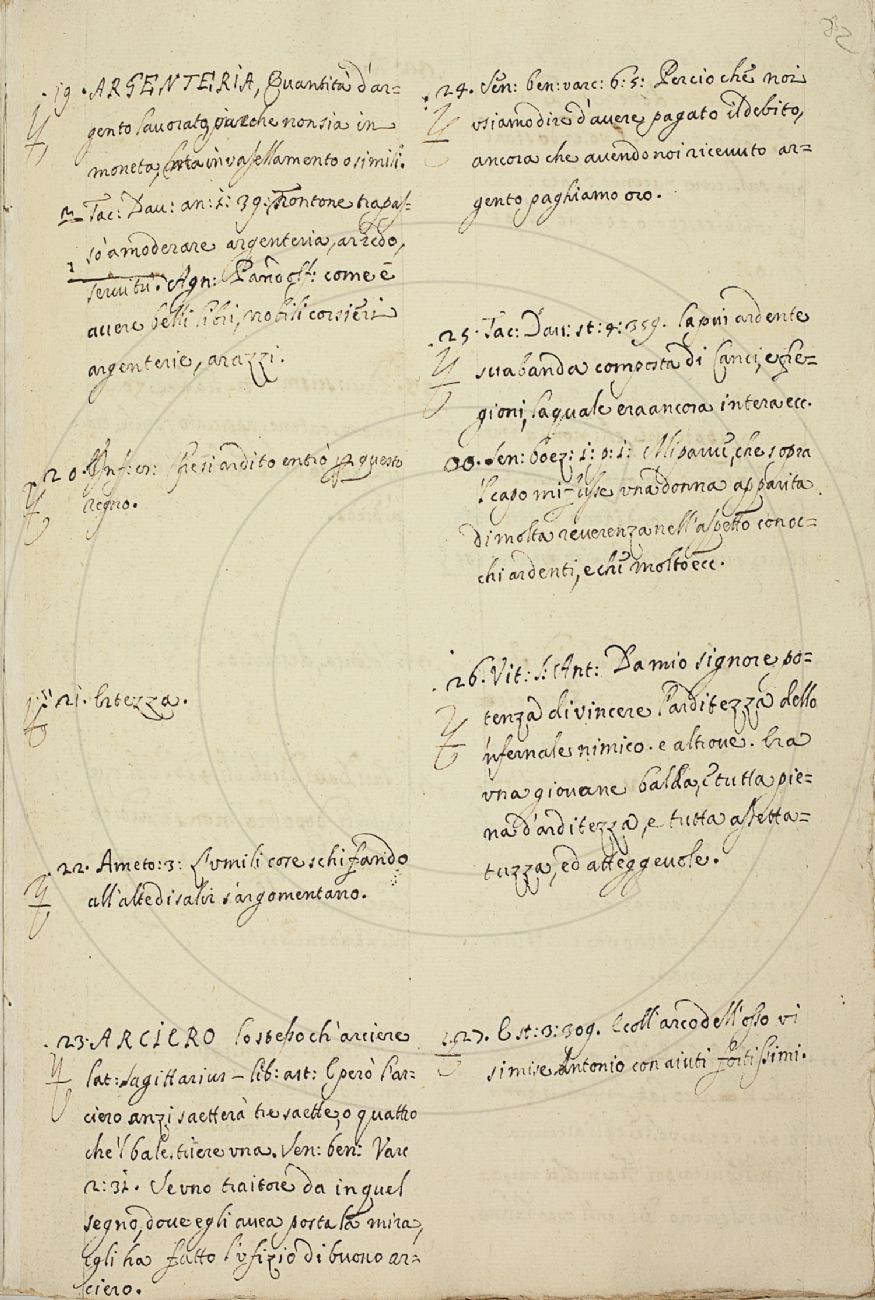 82
19. ARGENTERIA, Quantità d'ar=
gento lavorato, purche non sia in
moneta, ma in vasellamento o simili.
Tac: Dav: an: 2: 39: Frontone trapas=
sò a moderare argenteria, arredo,
servitù. Agn: Pandolf: come è
avere belli libri, nobili corsieri
argenterie, arazzi.
20. Inf: 8: Che si ardito entrò p questo
regno.
21. Ertezza.
22. Ameto: 3: L'umili cose schifando
all'alte di salir s'argomentano.
23. ARCIERO lo stesso ch'arciere
lat: sagittarius – lib: ast: E però l'ar=
ciero anzi saetterà tre saette, o quattro
che 'l balestriere una. Sen: ben: Varc
2: 31. Se uno traitore da in quel
segno, dove egli avea posta la mira,
egli ha fatto l'ufizio di buono ar=
ciero.
24. Sen: ben: varc: 6: 5: Percio che noi
usiamo dire d'avere pagato il debito,
ancora che avendo noi ricevuto ar=
gento paghiamo oro.
25. Tac: Dav: st: 4: 359. la piu ardente
sua banda composta di Canci, e Fre=
gioni, la quale era ancora intera ecc.
Sen: boez: 1: p: 1: Mi parve, che sopra
'l capo mi fusse una donna apparita
di molta reverenza nell'aspetto con oc=
chi ardenti, e chi molto ecc.
26. Vit: S: Ant: Da mio signore po=
tenza di vincere l'arditezza dello
'nfernale nimico. e altrove. Era
una giovane balda, e tutta pie=
na d'arditezza, e tutta assetta=
tuzza, ed atteggevole.
27. E st: 3: 309. E coll'arco dell'osso vi
si mise Antonio con aiuti fortissimi.